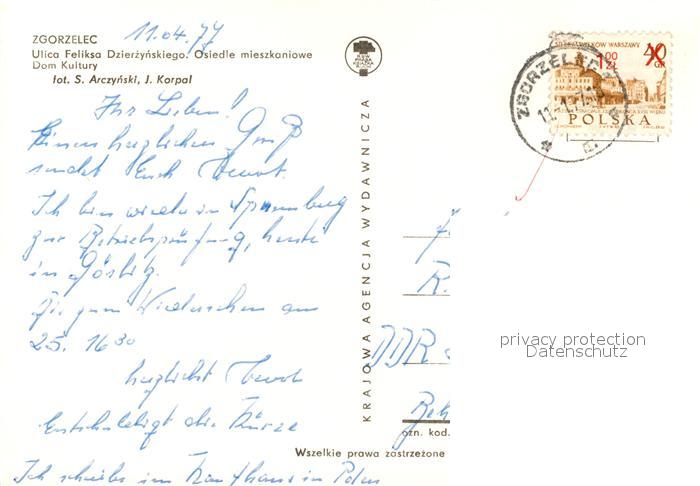 11.04.77
ZGORZELEC
Ulica Feliksa Dzierżyńskiego. Osiedle mieszkaniowe
Dom Kultury
fot. S. Arczyński, J. Korpal
Ihr Lieben!
Einen herzlichen Gruß
sendet Euch
Ich bin wieder in Spremberg
zur Betriebsprüfung, heute
in Görlitz.
Bis zum Wiedersehen am
25. 16³⁰
herzlichst
Entschuldigt die Kürze
Ich schreibe im Kaufhaus in Polen
KRAJOWA AGENCJA WYDAWNICZA
WARSZAWY
1,00
ZŁ
40
GR
POLSKA
ZGORZELEC
DDR
ozn. kod.
Wszelkie prawa zastrzeżone
privacy protection
Datenschutz